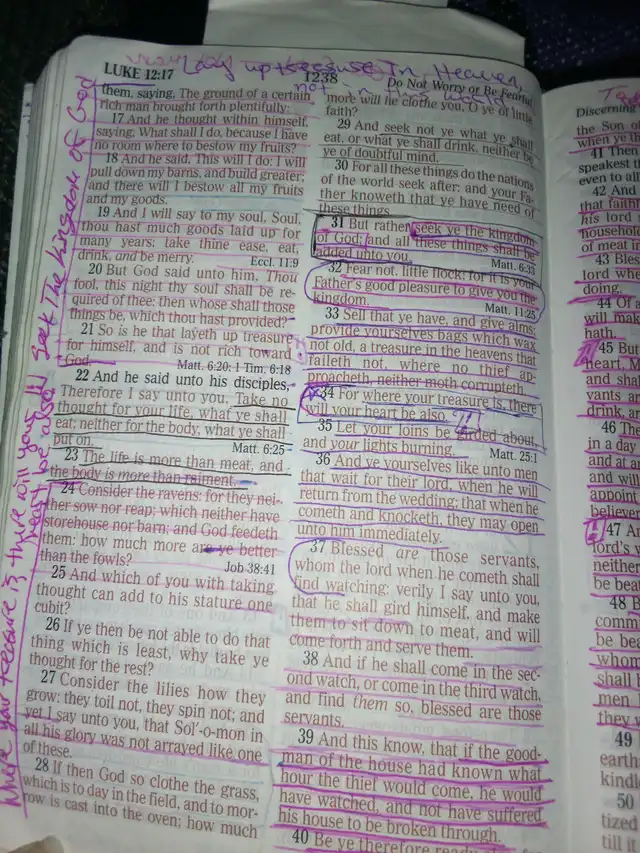 Lay up treasure In Heaven,
not in this world
LUKE 12:17
1238
Do Not Worry or Be Fearful
Seek The Kingdom of God
Where your treasure is there will your heart be also
them, saying, The ground of a certain
rich man brought forth plentifully:
17 And he thought within himself,
saying, What shall I do, because I have
no room where to bestow my fruits?
18 And he said, This will I do: I will
pull down my barns, and build greater;
and there will I bestow all my fruits
and my goods.
19 And I will say to my soul, Soul,
thou hast much goods laid up for
many years; take thine ease, eat,
drink, and be merry. Eccl. 11:9
20 But God said unto him, Thou
fool, this night thy soul shall be re-
quired of thee: then whose shall those
things be, which thou hast provided?
21 So is he that layeth up treasure
for himself, and is not rich toward
God. Matt. 6:20; 1 Tim. 6:18
22 And he said unto his disciples,
Therefore I say unto you, Take no
thought for your life, what ye shall
eat; neither for the body, what ye shall
put on. Matt. 6:25
23 The life is more than meat, and
the body is more than raiment.
24 Consider the ravens: for they nei-
ther sow nor reap; which neither have
storehouse nor barn; and God feedeth
them: how much more are ye better
than the fowls? Job 38:41
25 And which of you with taking
thought can add to his stature one
cubit?
26 If ye then be not able to do that
thing which is least, why take ye
thought for the rest?
27 Consider the lilies how they
grow: they toil not, they spin not; and
yet I say unto you, that Sol´-o-mon in
all his glory was not arrayed like one
of these.
28 If then God so clothe the grass,
which is to day in the field, and to mor-
row is cast into the oven; how much
more will he clothe you, O ye of little
faith?
29 And seek not ye what ye shall
eat, or what ye shall drink, neither be
ye of doubtful mind.
30 For all these things do the nations
of the world seek after: and your Fa-
ther knoweth that ye have need of
these things.
31 But rather seek ye the kingdom
of God; and all these things shall be
added unto you. Matt. 6:33
32 Fear not, little flock; for it is your
Father's good pleasure to give you the
kingdom. Matt. 11:25
33 Sell that ye have, and give alms;
provide yourselves bags which wax
not old, a treasure in the heavens that
faileth not, where no thief ap-
proacheth, neither moth corrupteth.
34 For where your treasure is, there
will your heart be also.
35 Let your loins be girded about,
and your lights burning; Matt. 25:1
36 And ye yourselves like unto men
that wait for their lord, when he will
return from the wedding; that when he
cometh and knocketh, they may open
unto him immediately.
37 Blessed are those servants,
whom the lord when he cometh shall
find watching: verily I say unto you,
that he shall gird himself, and make
them to sit down to meat, and will
come forth and serve them.
38 And if he shall come in the sec-
ond watch, or come in the third watch,
and find them so, blessed are those
servants.
39 And this know, that if the good-
man of the house had known what
hour the thief would come, he would
have watched, and not have suffered
his house to be broken through.
40 Be ye therefore ready
Discerning
the Son of
when ye
41 Then
speakest
even to all
42 And
that faith
his lord
household
of meat in
43 Bles
lord whe
doing.
44 Of
will mak
hath.
45 But
heart, M
and sha
vants a
drink, a
46 The
in a day
and at a
and will
appoin
believer
47 An
lord's
neither
be beat
48 B
commi
be bea
whom
shall
men
they
49
earth
kindl
50
tized
till it